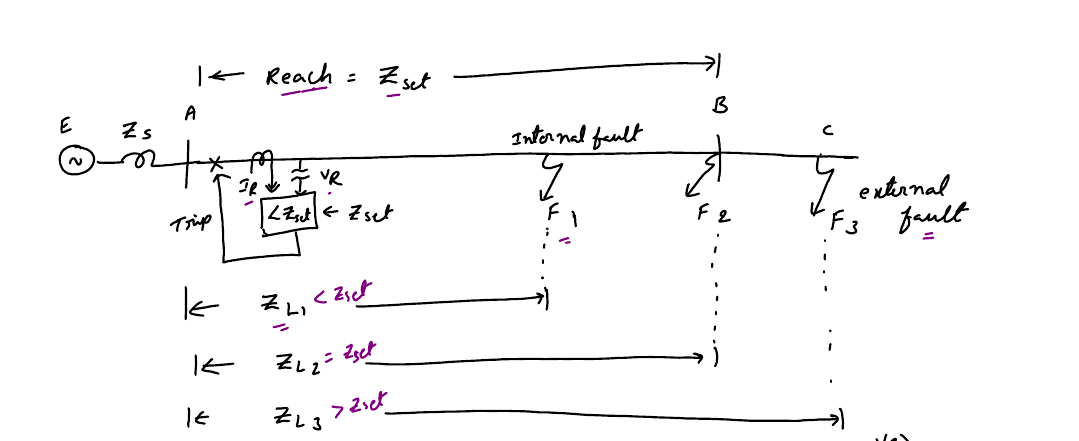 Reach = Zset
E
Zs
A
B
C
~
Internal fault
IR
VR
Trip
<Zset
← Zset
F1
F2
F3
external
fault
ZL1 < Zset
ZL2 = Zset
ZL3 > Zset